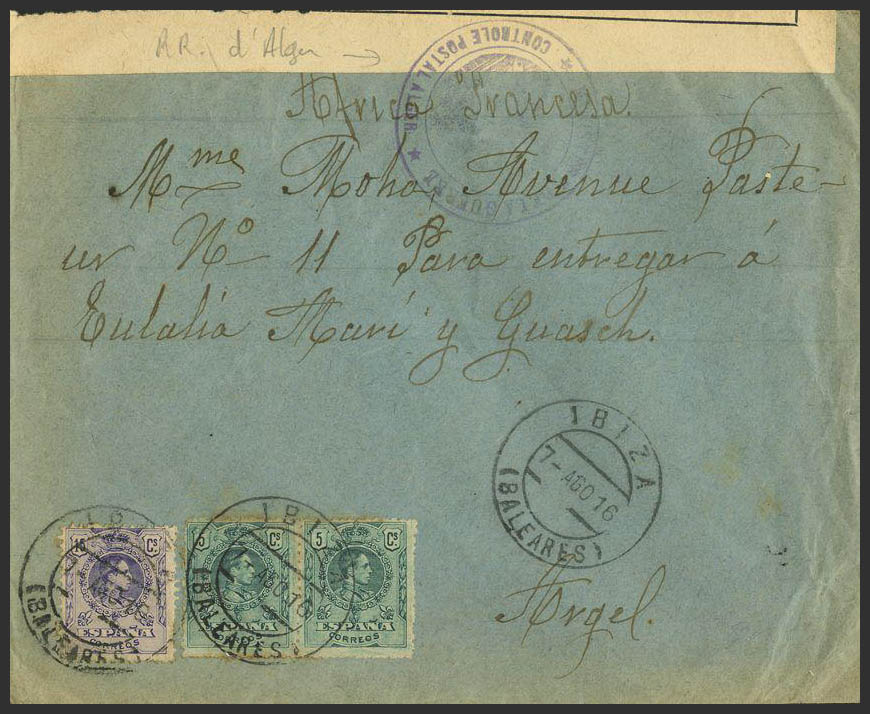 R.R. d'Alger →
CONTROLE POSTAL ALGER
Africa Francesa.
Mme Moha, Avenue Paste-
ur Nº 11 Para entregar á
Eulalia Marí y Guasch.
IBIZA
7-AGO 16
(BALEARES)
15 Cs
ESPAÑA
CORREOS
5 Cs
ESPAÑA
5 Cs
ESPAÑA
CORREOS
IBIZA
AGO 16
(BALEARES)
(BALEARES)
Argel.